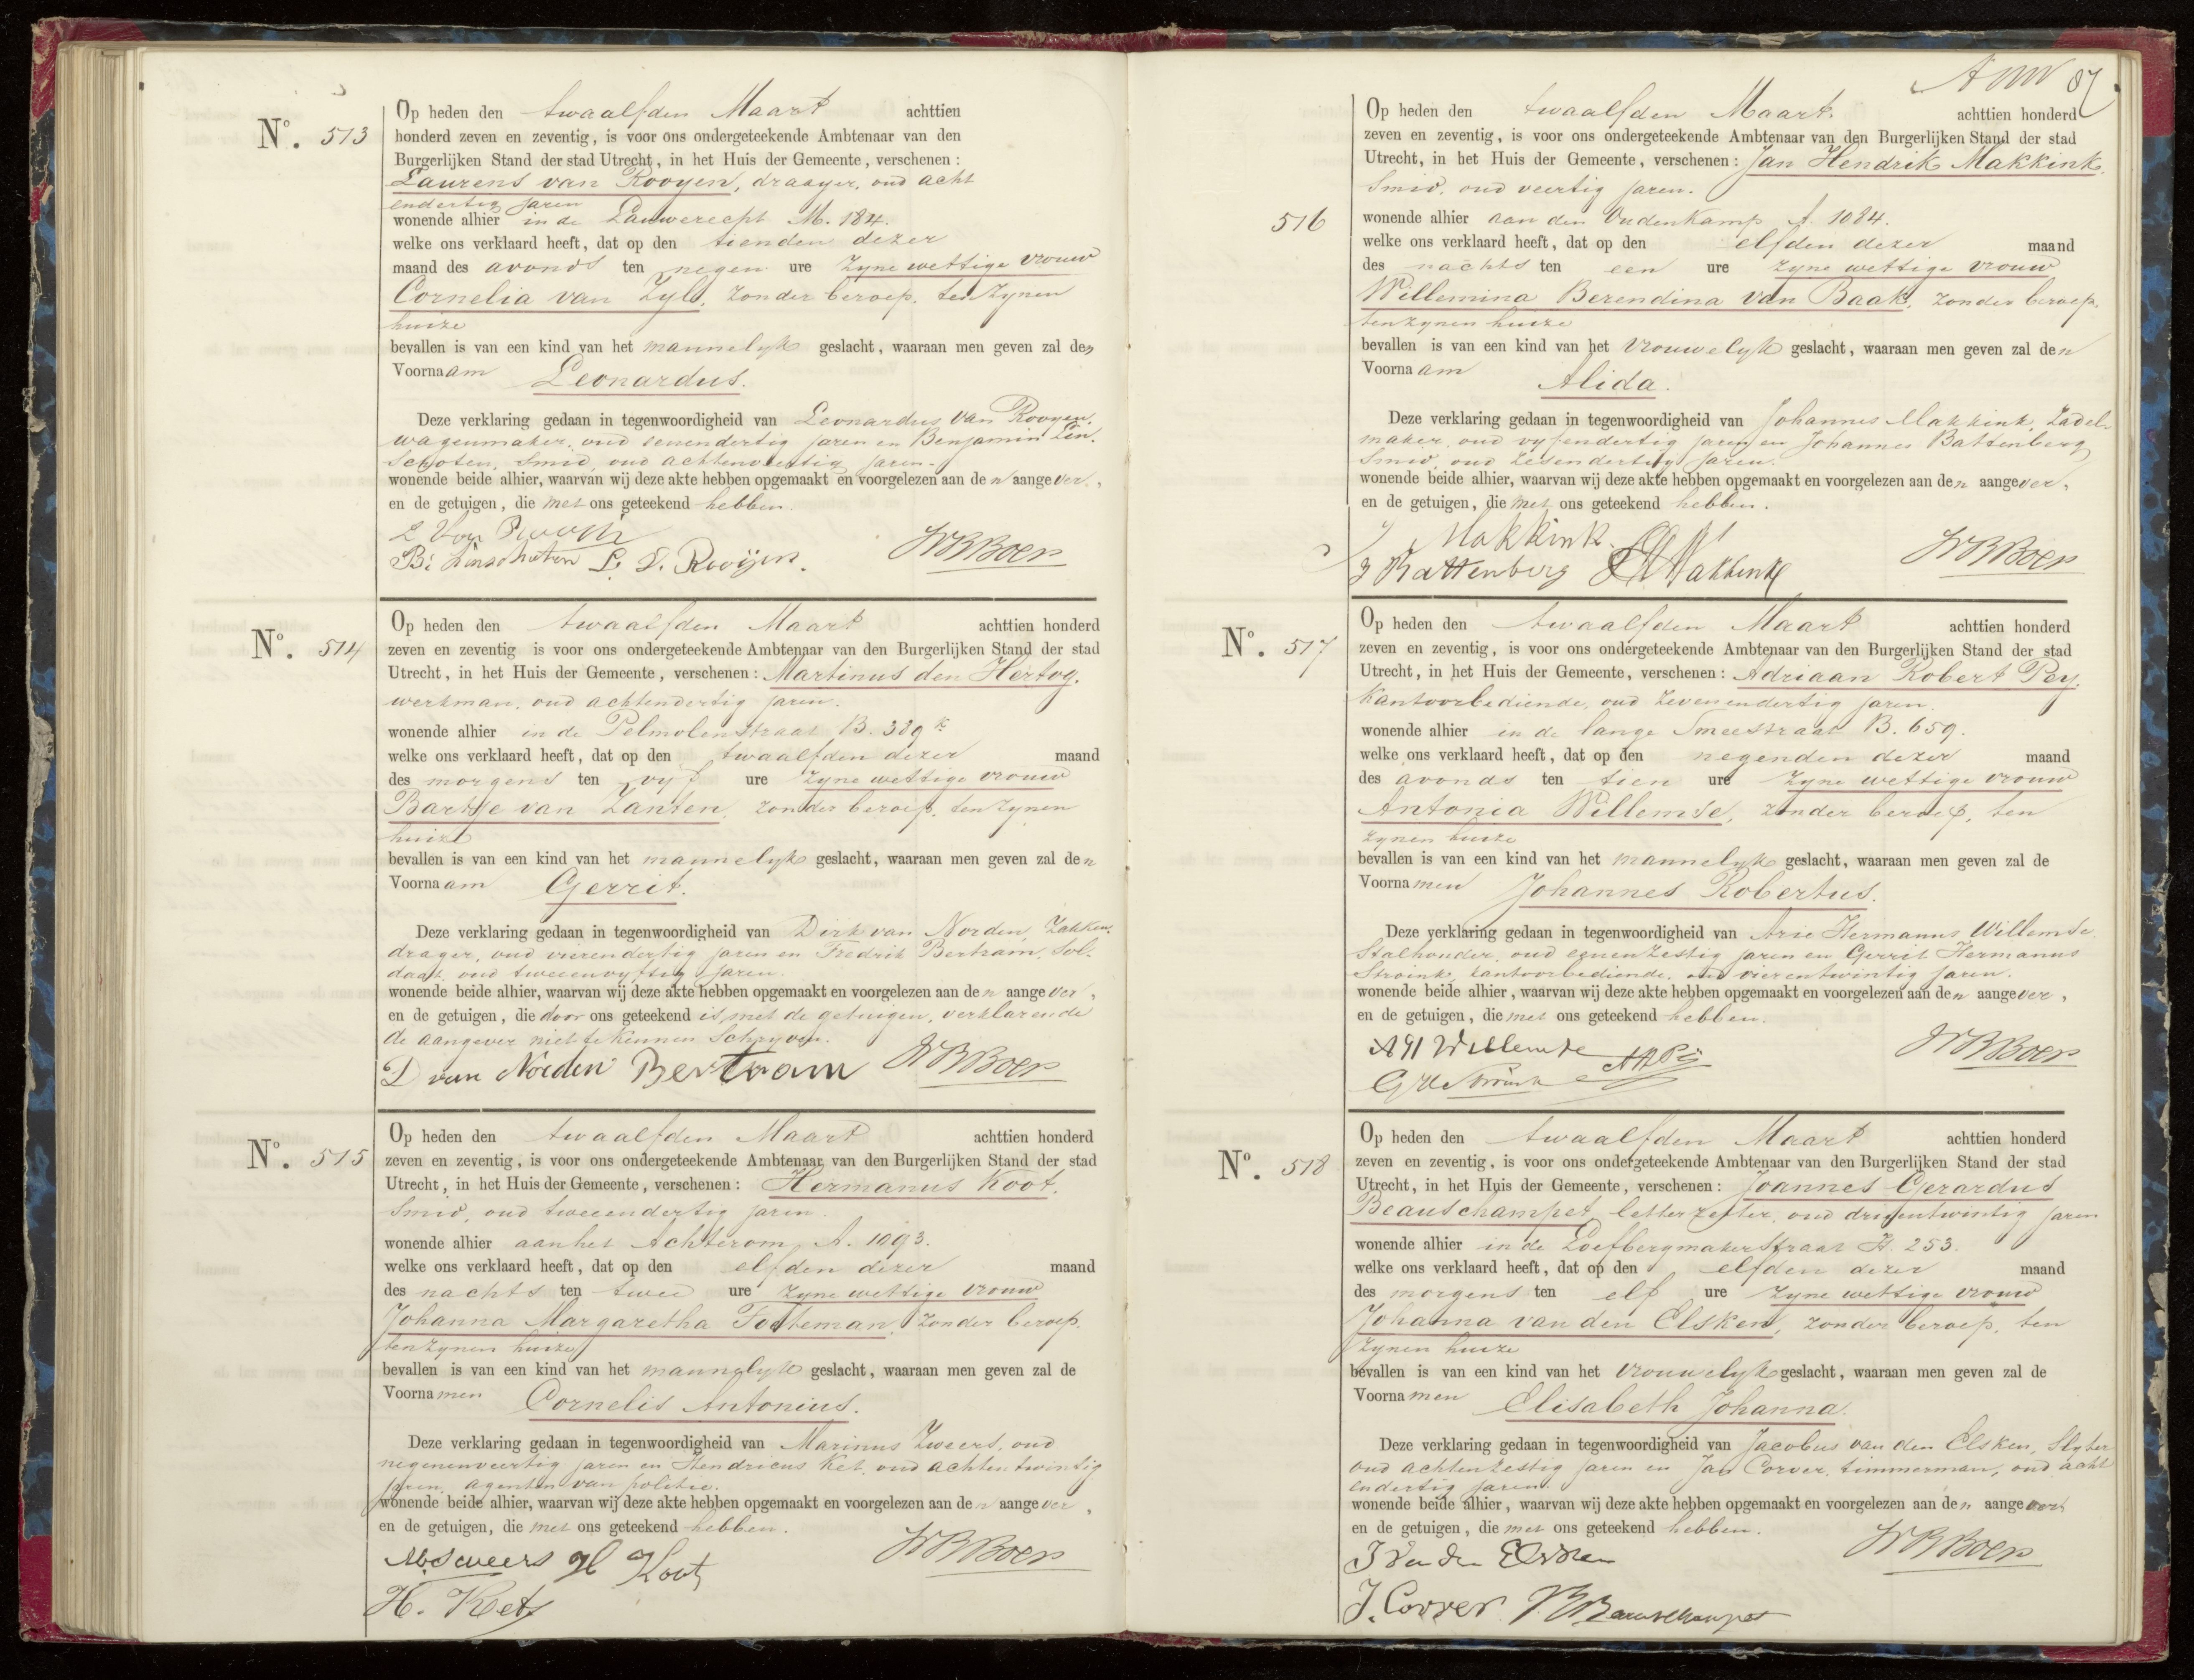 No. 513
Op heden den twaalfden Maart achttien
honderd zeven en zeventig, is voor ons ondergeteekende Ambtenaar van den
Burgerlijken Stand der stad Utrecht, in het Huis der Gemeente, verschenen:
Laurens van Rooyen, draayer, oud acht
endertig jaren
wonende alhier in de Lauwerecht M. 184.
welke ons verklaard heeft, dat op den tienden dezer
maand des avonds ten negen ure zyne wettige vrouw
Cornelia van Zyl, zonder beroep, ten zynen
huize
bevallen is van een kind van het mannelyk geslacht, waaraan men geven zal den
Voornaam Leonardus.
Deze verklaring gedaan in tegenwoordigheid van Leonardus van Rooyen,
wagenmaker, oud eenendertig jaren en Benjamin Lin-
schoten, Smid, oud achtenveertig jaren.
wonende beide alhier, waarvan wij deze akte hebben opgemaakt en voorgelezen aan den aangever,
en de getuigen, die met ons geteekend hebben.
L Van Rooÿen
B: Linschoten L. v. Rooÿen. WBBoer
No. 514
Op heden den twaalfden Maart achttien honderd
zeven en zeventig is voor ons ondergeteekende Ambtenaar van den Burgerlijken Stand der stad
Utrecht, in het Huis der Gemeente, verschenen: Martinus den Hertog,
werkman, oud achtendertig jaren.
wonende alhier in de Pelmolenstraat B. 389 k
welke ons verklaard heeft, dat op den twaalfden dezer maand
des morgens ten vyf ure zyne wettige vrouw
Bartje van Zanten, zonder beroep, ten zynen
huize
bevallen is van een kind van het mannelyk geslacht, waaraan men geven zal den
Voornaam Gerrit.
Deze verklaring gedaan in tegenwoordigheid van Dirk van Norden, Zakken-
drager, oud vierendertig jaren en Fredrik Bertram, Sol-
daat, oud tweeenvyftig jaren.
wonende beide alhier, waarvan wij deze akte hebben opgemaakt en voorgelezen aan den aangever,
en de getuigen, die door ons geteekend is, met de getuigen, verklarende
de aangever niet te kunnen Schryven.
D van Norden Bertram WBBoer
No. 515
Op heden den twaalfden Maart achttien honderd
zeven en zeventig, is voor ons ondergeteekende Ambtenaar van den Burgerlijken Stand der stad
Utrecht, in het Huis der Gemeente, verschenen: Hermanus Koot,
Smid, oud tweeendertig jaren.
wonende alhier aan het Achterom A. 1093.
welke ons verklaard heeft, dat op den elfden dezer maand
des nachts ten twee ure zyne wettige vrouw
Johanna Margaretha Footeman, zonder beroep,
ten zynen huize
bevallen is van een kind van het mannelyk geslacht, waaraan men geven zal de
Voornamen Cornelis Antonius.
Deze verklaring gedaan in tegenwoordigheid van Marinus Zweers, oud
negenenveertig jaren en Hendricus Ket, oud achtentwintig
jaren, agenten van politie.
wonende beide alhier, waarvan wij deze akte hebben opgemaakt en voorgelezen aan den aangever,
en de getuigen, die met ons geteekend hebben.
M. Sweers H Koot WBBoer
H. Ket
87
Op heden den twaalfden Maart achttien honderd
zeven en zeventig, is voor ons ondergeteekende Ambtenaar van den Burgerlijken Stand der stad
Utrecht, in het Huis der Gemeente, verschenen: Jan Hendrik Makkink,
Smid, oud veertig jaren.
516
wonende alhier aan den Oudenkamp A 1084.
welke ons verklaard heeft, dat op den elfden dezer maand
des nachts ten een ure zyne wettige vrouw
Willemina Berendina van Baak, zonder beroep,
ten zynen huize
bevallen is van een kind van het vrouwelyk geslacht, waaraan men geven zal den
Voornaam Alida.
Deze verklaring gedaan in tegenwoordigheid van Johannes Makkink, Zadel-
maker, oud vyfendertig jaren en Johannes Battenberg
Smid, oud zesendertig jaren.
wonende beide alhier, waarvan wij deze akte hebben opgemaakt en voorgelezen aan den aangever,
en de getuigen, die met ons geteekend hebben.
J Makkink.
J Battenberg JH Makkink WBBoer
No. 517
Op heden den twaalfden Maart achttien honderd
zeven en zeventig, is voor ons ondergeteekende Ambtenaar van den Burgerlijken Stand der stad
Utrecht, in het Huis der Gemeente, verschenen: Adriaan Robert Pey,
Kantoorbediende, oud zevenendertig jaren.
wonende alhier in de lange Smeestraat B. 659.
welke ons verklaard heeft, dat op den negenden dezer maand
des avonds ten tien ure zyne wettige vrouw
Antonia Willemse, zonder beroep, ten
zynen huize
bevallen is van een kind van het mannelyk geslacht, waaraan men geven zal de
Voornamen Johannes Robertus.
Deze verklaring gedaan in tegenwoordigheid van Arie Hermanus Willemse
Stalhouder, oud eenenzestig jaren en Gerrit Hermanus
Stroink, kantoorbediende, oud vierentwintig jaren.
wonende beide alhier, waarvan wij deze akte hebben opgemaakt en voorgelezen aan den aangever,
en de getuigen, die met ons geteekend hebben.
AH Willemse
GH Stroink WBBoer
No. 518
Op heden den twaalfden Maart achttien honderd
zeven en zeventig, is voor ons ondergeteekende Ambtenaar van den Burgerlijken Stand der stad
Utrecht, in het Huis der Gemeente, verschenen: Joannes Gerardus
Beauschampet, letterzetter, oud drieentwintig jaren
wonende alhier in de Loefbergmakerstraat H. 253.
welke ons verklaard heeft, dat op den elfden dezer maand
des morgens ten elf ure zyne wettige vrouw
Johanna van den Elsken, zonder beroep, ten
zynen huize
bevallen is van een kind van het vrouwelyk geslacht, waaraan men geven zal de
Voornamen Elisabeth Johanna.
Deze verklaring gedaan in tegenwoordigheid van Jacobus van den Elsken, Slyter
oud achtenzestig jaren en Jan Corver, timmerman, oud acht
endertig jaren.
wonende beide alhier, waarvan wij deze akte hebben opgemaakt en voorgelezen aan den aangever
en de getuigen, die met ons geteekend hebben.
J Van den Elsken WBBoer
J. Corver Beauschampet